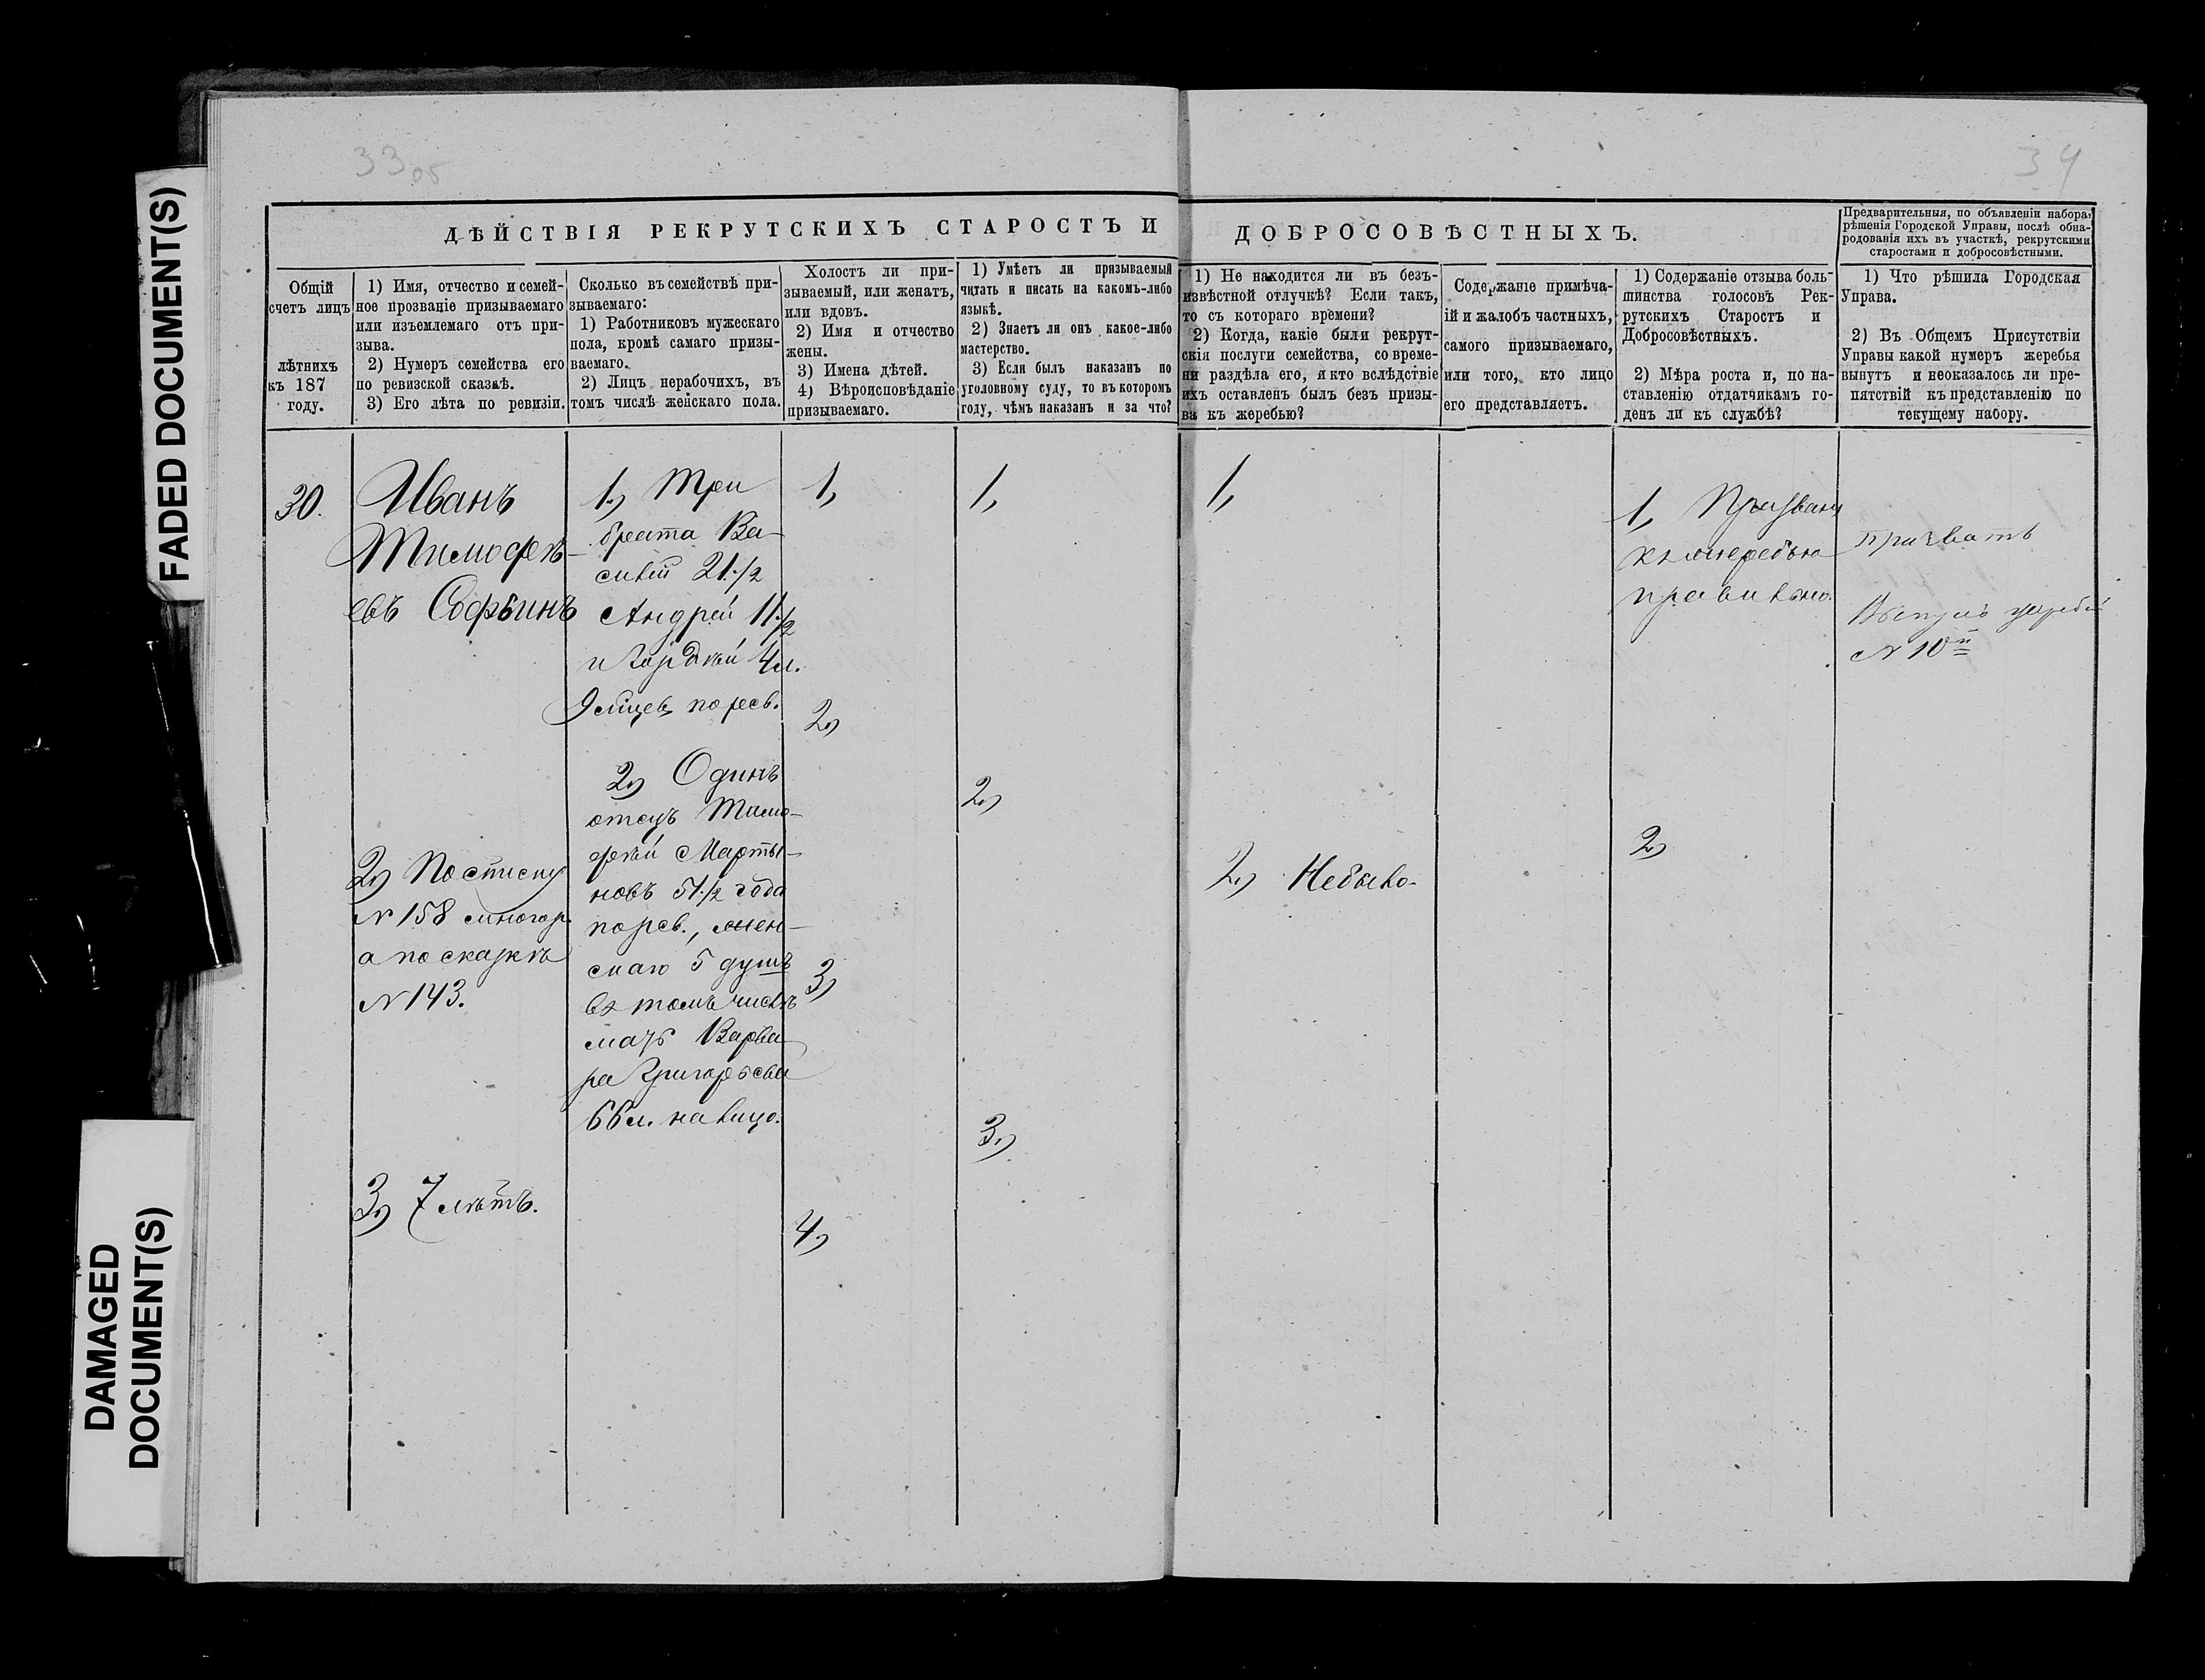 FADED DOCUMENT(S)
DAMAGED
DOCUMENT(S)
33об
34
ДѢЙСТВІЯ РЕКРУТСКИХЪ СТАРОСТЪ И
ДОБРОСОВѢСТНЫХЪ.
Предварительныя, по объявленіи набора,
рѣшенія Городской Управы, послѣ обна-
родованія ихъ въ участкѣ, рекрутскими
старостами и добросовѣстными.
Общій
счетъ лицъ
лѣтнихъ
къ 187
году.
1) Имя, отчество и семей-
ное прозваніе призываемаго
или изъемлемаго отъ при-
зыва.
2) Нумеръ семейства его
по ревизской сказкѣ.
3) Его лѣта по ревизіи.
Сколько въ семействѣ при-
зываемаго:
1) Работниковъ мужескаго
пола, кромѣ самаго призы-
ваемаго.
2) Лицъ нерабочихъ, въ
томъ числѣ женскаго пола.
Холостъ ли при-
зываемый, или женатъ,
или вдовъ.
2) Имя и отчество
жены.
3) Имена дѣтей.
4) Вѣроисповѣданіе
призываемаго.
1) Умѣетъ ли призываемый
читать и писать на какомъ-либо
языкѣ.
2) Знаетъ ли онъ какое-либо
мастерство.
3) Если былъ наказанъ по
уголовному суду, то въ которомъ
году, чѣмъ наказанъ и за что?
1) Не находится ли въ безъ-
извѣстной отлучкѣ? Если такъ,
то съ котораго времени?
2) Когда, какіе были рекрут-
скія послуги семейства, со време-
ни раздѣла его, я кто вслѣдствіе
ихъ оставленъ былъ безъ призы-
ва къ жеребью?
Содержаніе примѣча-
ій и жалобъ частныхъ,
самого призываемаго,
или того, кто лицо
его представляетъ.
1) Содержаніе отзыва боль-
шинства голосовъ Рек-
рутскихъ Старостъ и
Добросовѣстныхъ.
2) Мѣра роста и, по на-
ставленію отдатчикамъ го-
денъ ли къ службѣ?
1) Что рѣшила Городская
Управа.
2) Въ Общемъ Присутствіи
Управы какой нумеръ жеребья
вынутъ и неоказалось ли пре-
пятствій къ представленію по
текущему набору.
30.
Иванъ
Тимофѣ-
евъ Софьинъ
2,) По списку
№ 158 многор.
а по сказкѣ
№ 143.
3,) 7 лѣтъ.
1,) Три
брата Ва-
силій 21 1/2
Андрей 11 1/2
и Гордѣй 4 л.
9 мѣсяцев по рев.
2,) Одинъ
отецъ Тимо-
фѣй Марты-
новъ 51 1/2 года
по рев., жен-
скаго 5 душъ
въ томъ числѣ
мать Варва-
ра Григорьева
66 л. на лицо.
1,
2,)
3,)
4,)
1,
2,)
3,)
1,
2,) Небыло
1, Призванъ
къ жеребью
правильно.
2,)
призвать
Вынулъ жребій
№ 10й